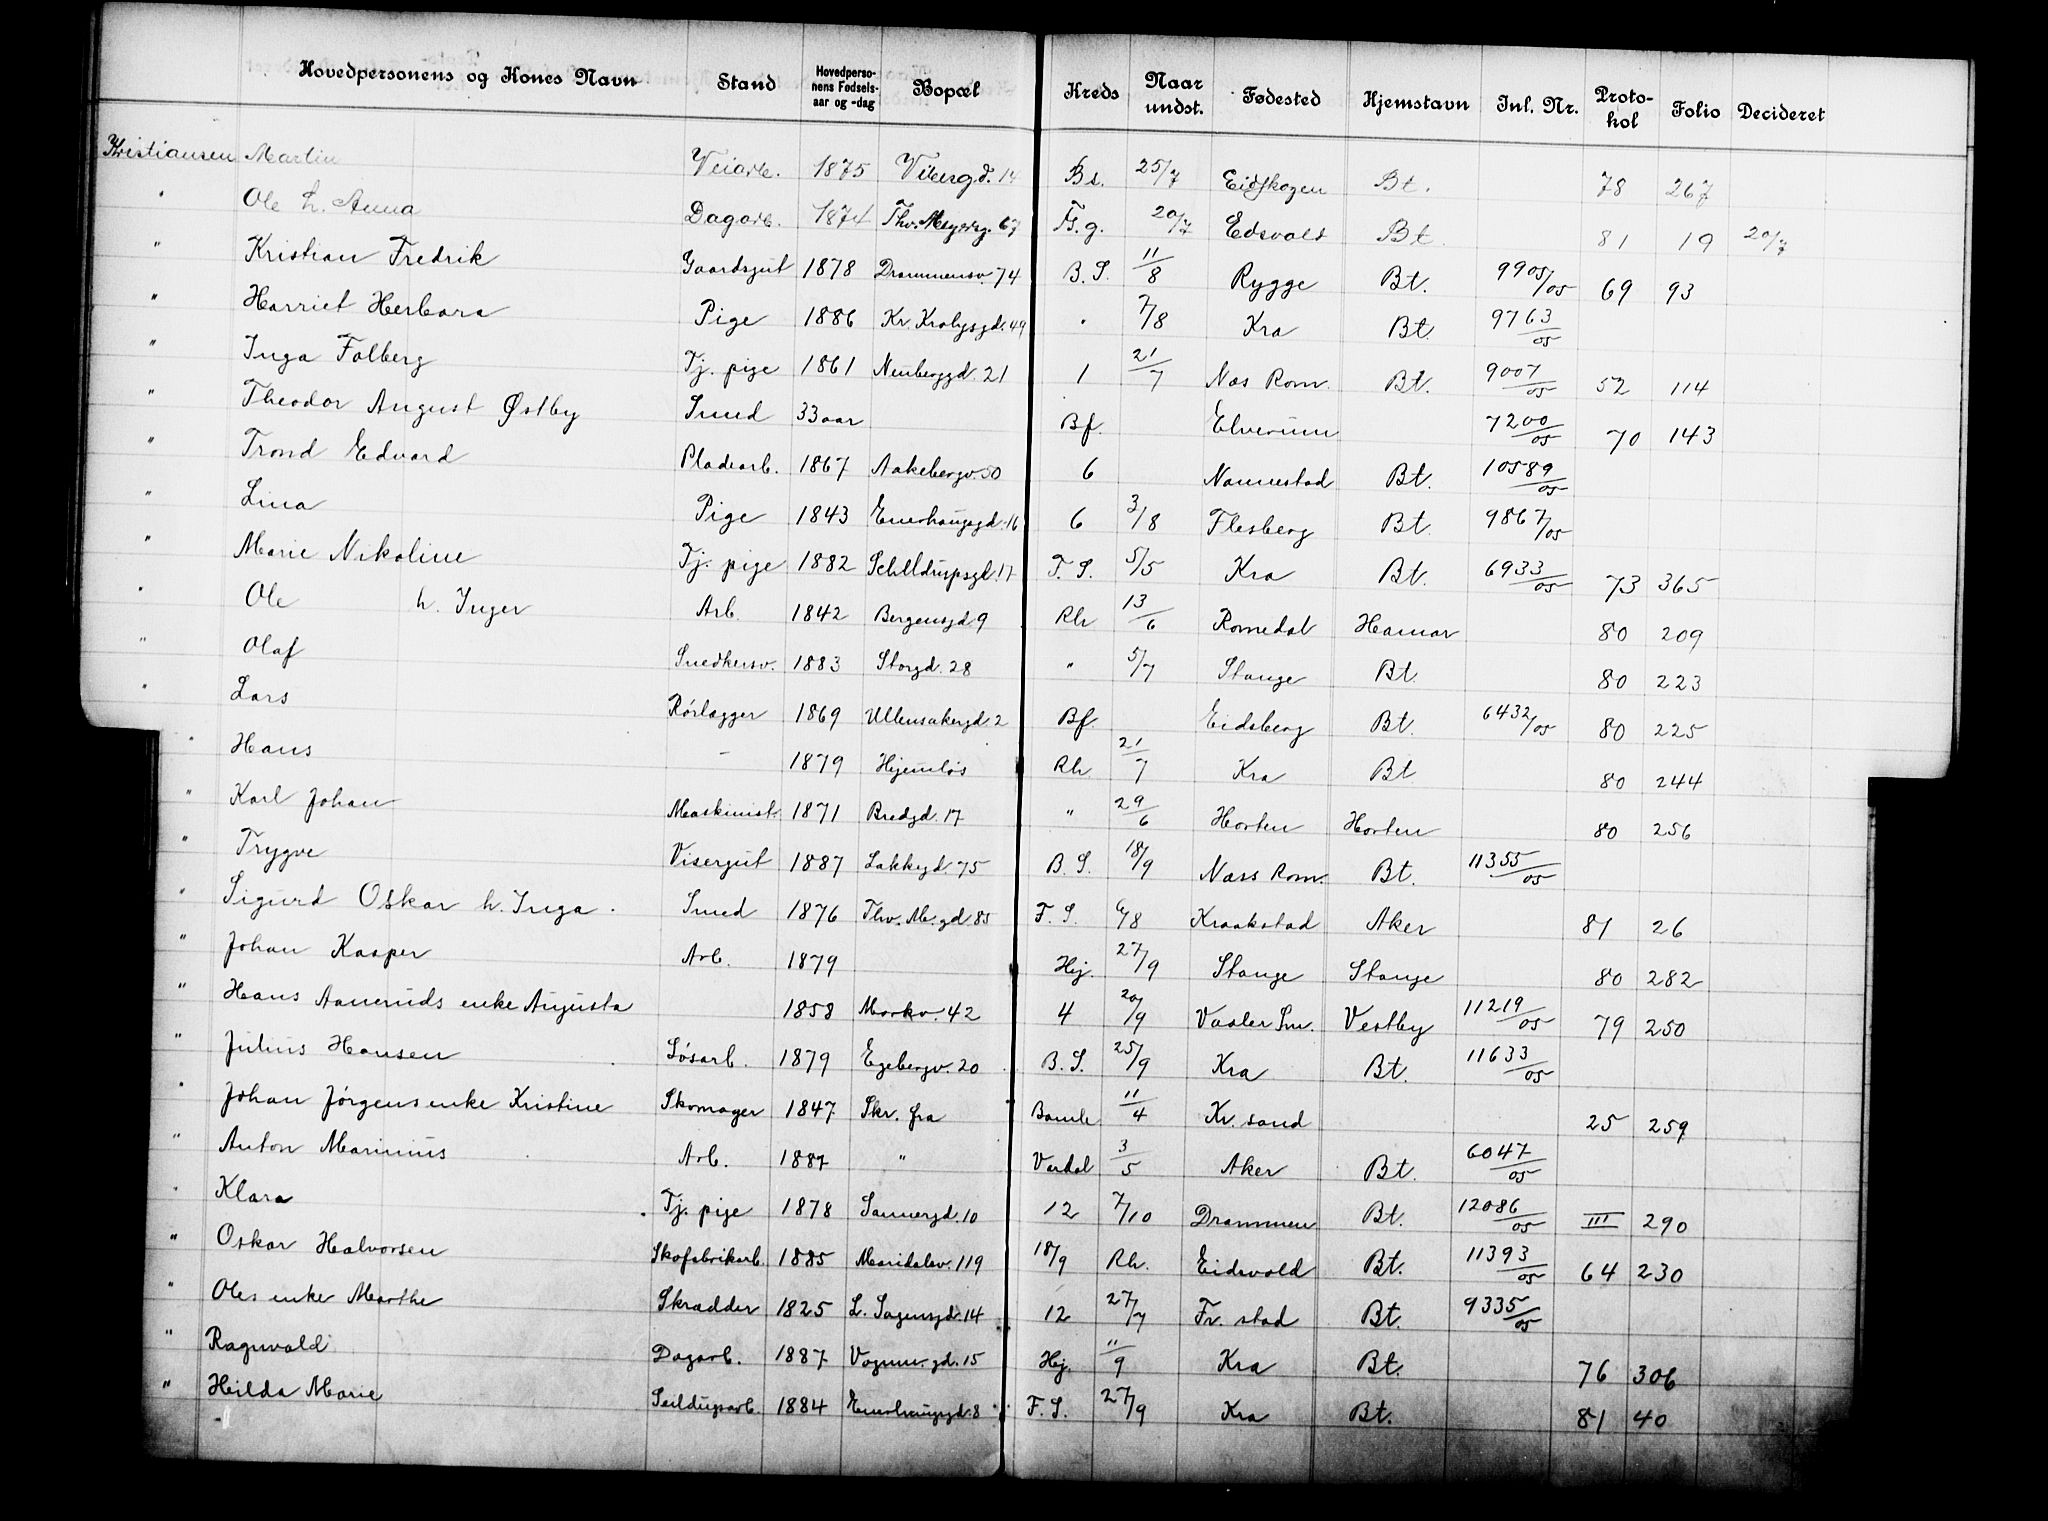 Hovedpersonens og Kones Navn Stand Hovedpersonens Fødselsaar og -dag Bopæl Kreds Naar undst. Fødested Hjemstavn Inl. Nr. Protokol Folio Decideret
Kristiansen Martin Veiarb. 1875 Vibesgd. 14 Bs. 25/7 Eidskogen Bt. 78 267
" Ole h. Anna Dagarb. 1874 Thv. Meyersg. 67 Fs. g. 20/7 Edsvold Bt. 81 19 20/7
" Kristian Fredrik Gaardsgut 1878 Drammensv. 74 B. S. 11/8 Rygge Bt. 9905/05 69 93
" Harriet Herbara Pige 1886 Kr. Krohgsgd. 49 " 7/8 Kra Bt. 9763/05
" Inga Folberg Tj. pige 1861 Neuberggd. 21 1 21/7 Nas Rom. Bt. 9007/05 52 114
" Theodor August Østby Smed 33 aar Bf. Elverum 7200/05 70 143
" Trond Edvard Pladearb. 1867 Aakebergv. 50 6 Nannestad Bt. 10589/05
" Lina Pige 1843 Enerhaugsgd. 16 6 3/8 Flesberg Bt. 9867/05
" Marie Nikoline Tj. pige 1882 Schilldrupsgd. 17 F. S. 5/5 Kra Bt. 6933/05 73 365
" Ole h. Inger Arb. 1842 Bergensgd. 9 Rh 13/6 Romedal Hamar 80 209
" Olaf Snedkersv. 1883 Storgd. 28 " 5/7 Stange Bt. 80 223
" Lars Rørlægger 1869 Ullensakergd. 2 Bf. Eidsberg Bt. 6432/05 80 225
" Hans - 1879 Hjemløs Rh 21/7 Kra Bt 80 244
" Karl Johan Maskinist. 1871 Bredgd. 17 " 29/6 Horten Horten 80 256
" Trygve Visergut 1887 Lakkegd. 75 B. S. 18/9 Næss Rom. Bt. 11355/05
" Sigurd Oskar h. Inga. Smed 1876 Thv. M. gd. 85 F. S. 6/8 Kraakstad Aker 81 26
" Johan Kasper Arb. 1879 Hj. 27/9 Stange Stange 80 282
" Hans Aaneruds enke Augusta 1858 Markv. 42 4 20/9 Vaaler Sm. Vestby 11219/05 79 250
" Julius Hansen Løsarb. 1879 Egebergv. 20 B. S. 25/9 Kra Bt. 11633/05
" Johan Jørgens enke Kristine Skomager 1847 Skr. fra Bamle 11/4 Kr. sand 25 259
" Anton Marinius Arb. 1887 " Verdal 3/5 Aker Bt. 6047/05
" Klara Tj. pige 1878 Sannergd. 10 12 7/10 Drammen Bt. 12086/05 III 290
" Oskar Halvorsen Skofabrikarb. 1885 Maridalsv. 119 18/9 Rh. Eidsvold Bt. 11393/05 64 230
" Oles enke Marthe Skrædder 1825 L. Sagensgd. 14 12 27/7 Fr. stad Bt. 9335/05
" Ragnvald Dagarb. 1887 Vognm. gd. 15 Hj. 11/9 Kra Bt. 76 306
" Hilda Marie Seildugsarb. 1884 Enerhaugsgd. 8 F. S. 27/9 Kra Bt. 81 40